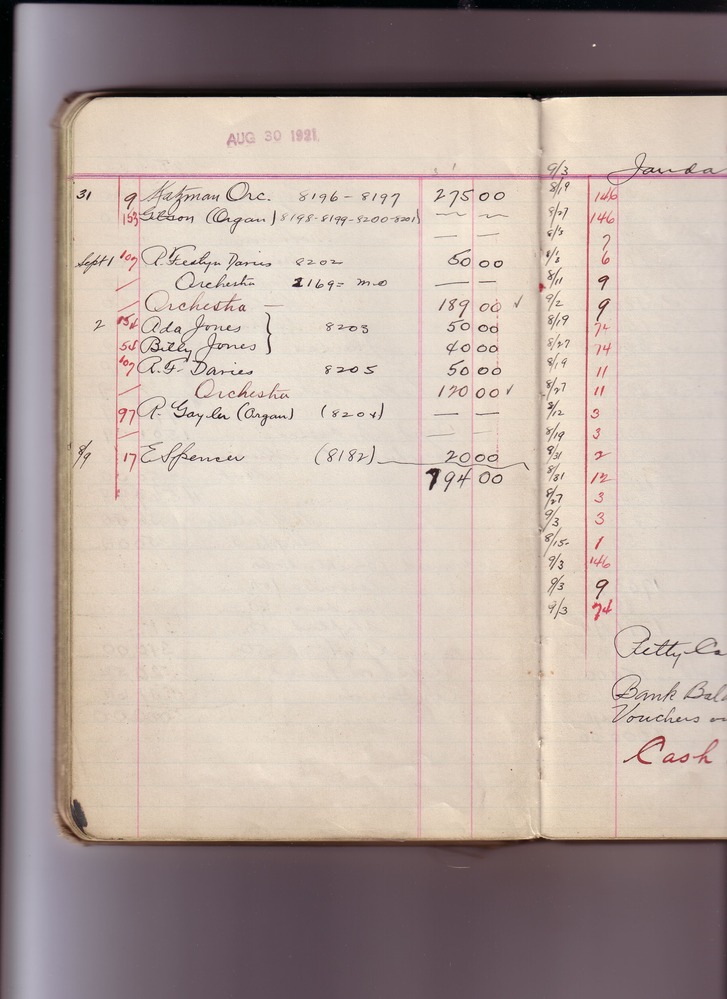 AUG 30 1921.
31 9 Katzman Orc. 8196 - 8197 275 00
153 Gibson (Organ) 8198-8199-8200-8201 — —
— —
Sept 1 107 R. Festyn Davies 8202 50 00
/ Orchestra 1169 = m.o — —
/ Orchestra — 189 00 ✓
2 154 Ada Jones } 8203 50 00
54 Billy Jones } 40 00
107 R. F. Davies 8205 50 00
/ Orchestra 120 00 ✓
97 R. Gayler (Organ) (8204) — —
/ — —
8/9 17 E Spencer (8182) 20 00
794 00
9/3 Janda
8/19 146
8/27 146
8/3 7
6
8/11 9
9/2 9
8/19 74
8/27 74
8/19 11
8/27 11
8/12 3
8/19 3
8/31 2
8/31 12
8/27 3
9/3 3
8/15- 1
9/3 146
9/3 9
9/3 74
Petty Ca
Bank Bal
Vouchers
Cash